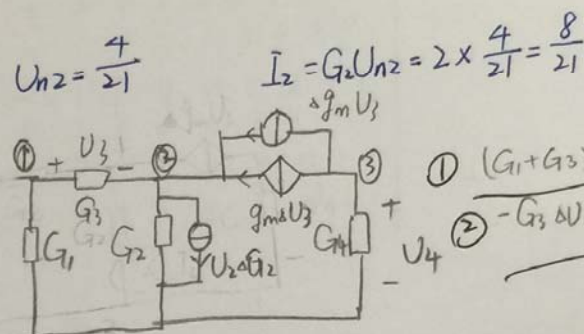 Un2 = 4/21
I2 = G2Un2 = 2 × 4/21 = 8/21
Δgm U3
① + U3 - ② ③
G3
gmΔU3
G1 G2 U2ΔG2 G4 + U4 -
① (G1+G3)
② -G3 ΔU